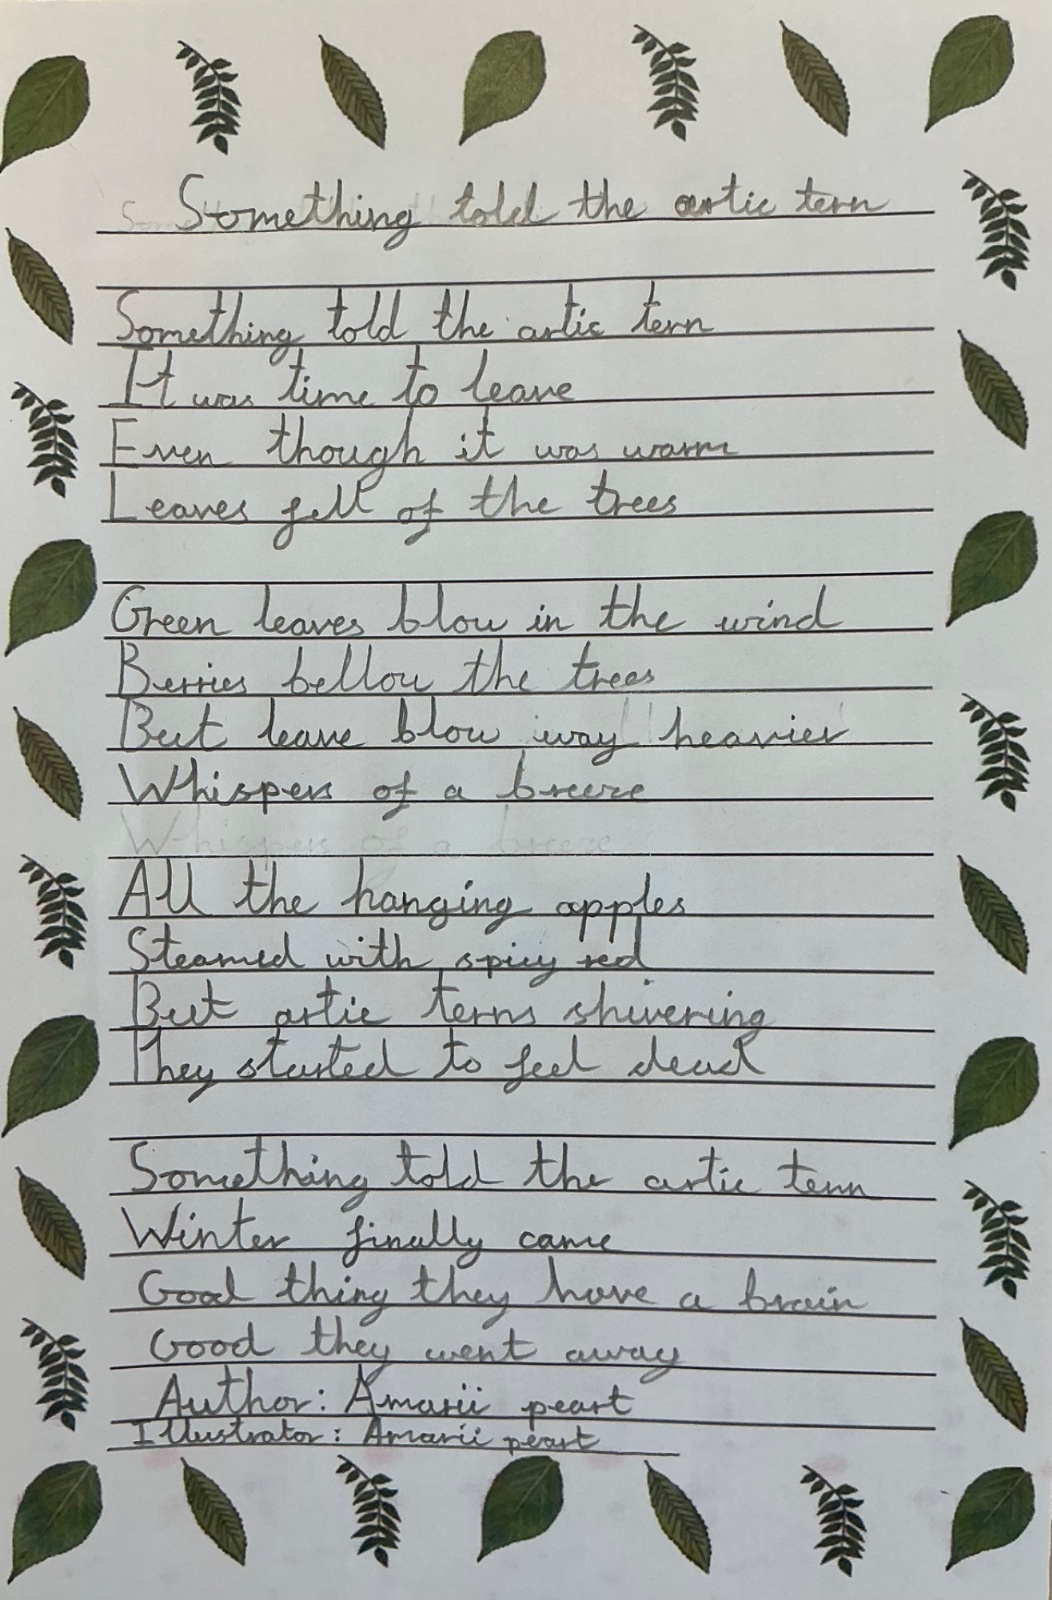 Something told the artic tern
Something told the artic tern
It was time to leave
Even though it was warm
Leaves fell of the trees
Green leaves blow in the wind
Berries bellow the trees
But leave blow way heavier
Whispers of a breeze
Whispers of a breeze
All the hanging apples
Steamed with spicy red
But artic terns shivering
They started to feel dead
Something told the artic tern
Winter finally came
Good thing they have a brain
Good they went away
Author: Amarii peart
Illustrator: Amarii peart